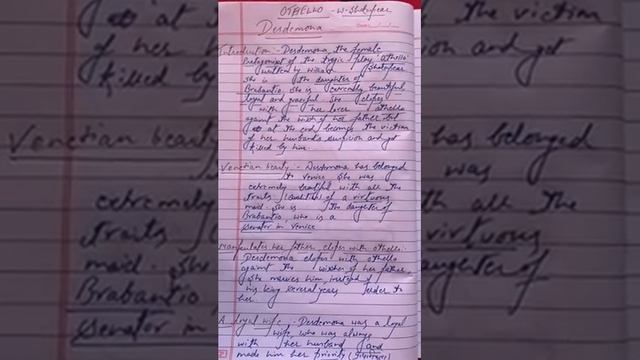 OTHELLO - W. Shakespear
Desdemona
Introduction - Desdemona, the female
Protagonist of the tragic play 'Othello'
written by William Shakespear
she is the daughter of
Brabantio. She is extremely beautiful,
loyal and graceful. She elopes
with her lover Othello
against the wish of her father but
at the end becomes the victim
of her husband's suspicion and got
killed by him.
Venetian beauty - Desdemona has belonged
to Venice. She was
extremely beautiful with all the
traits / qualities of a virtuous
maid. She is the daughter of
Brabantio, who is a
senator in Venice
her father elopes with Othello:
Desdemona elopes with Othello
against the wishes of her father,
She marries him instead of
his being several years elder to
her.
A loyal wife - Desdemona was a loyal
wife, who was always
with her husband and
made him her priority